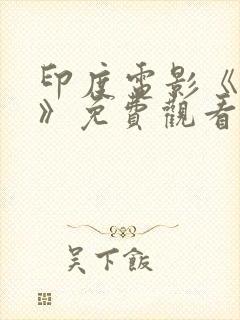 印度電影《
》免費觀看
吴下飯